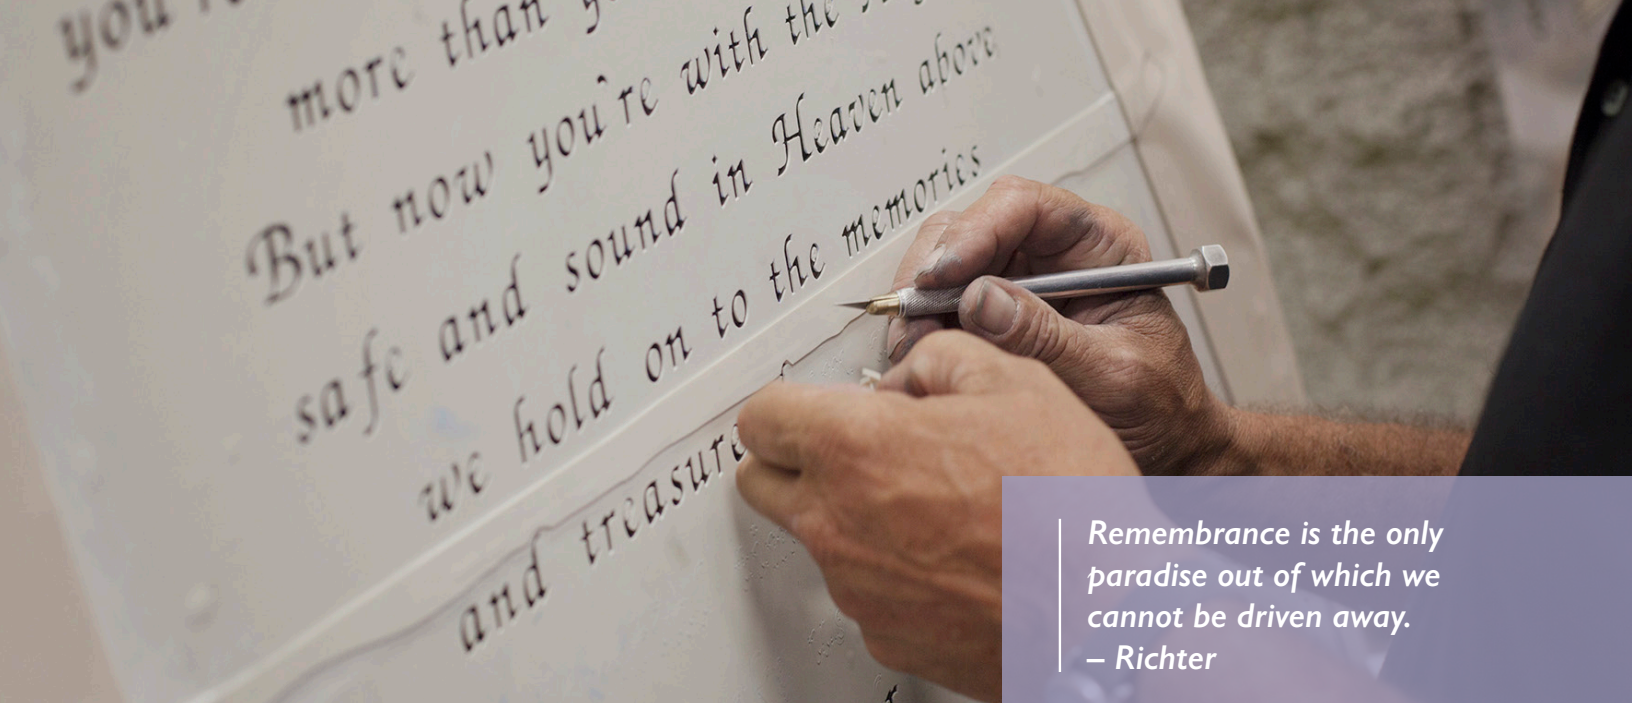 more than
But now you're with the
safe and sound in Heaven above
we hold on to the memories
and treasure
Remembrance is the only
paradise out of which we
cannot be driven away.
– Richter